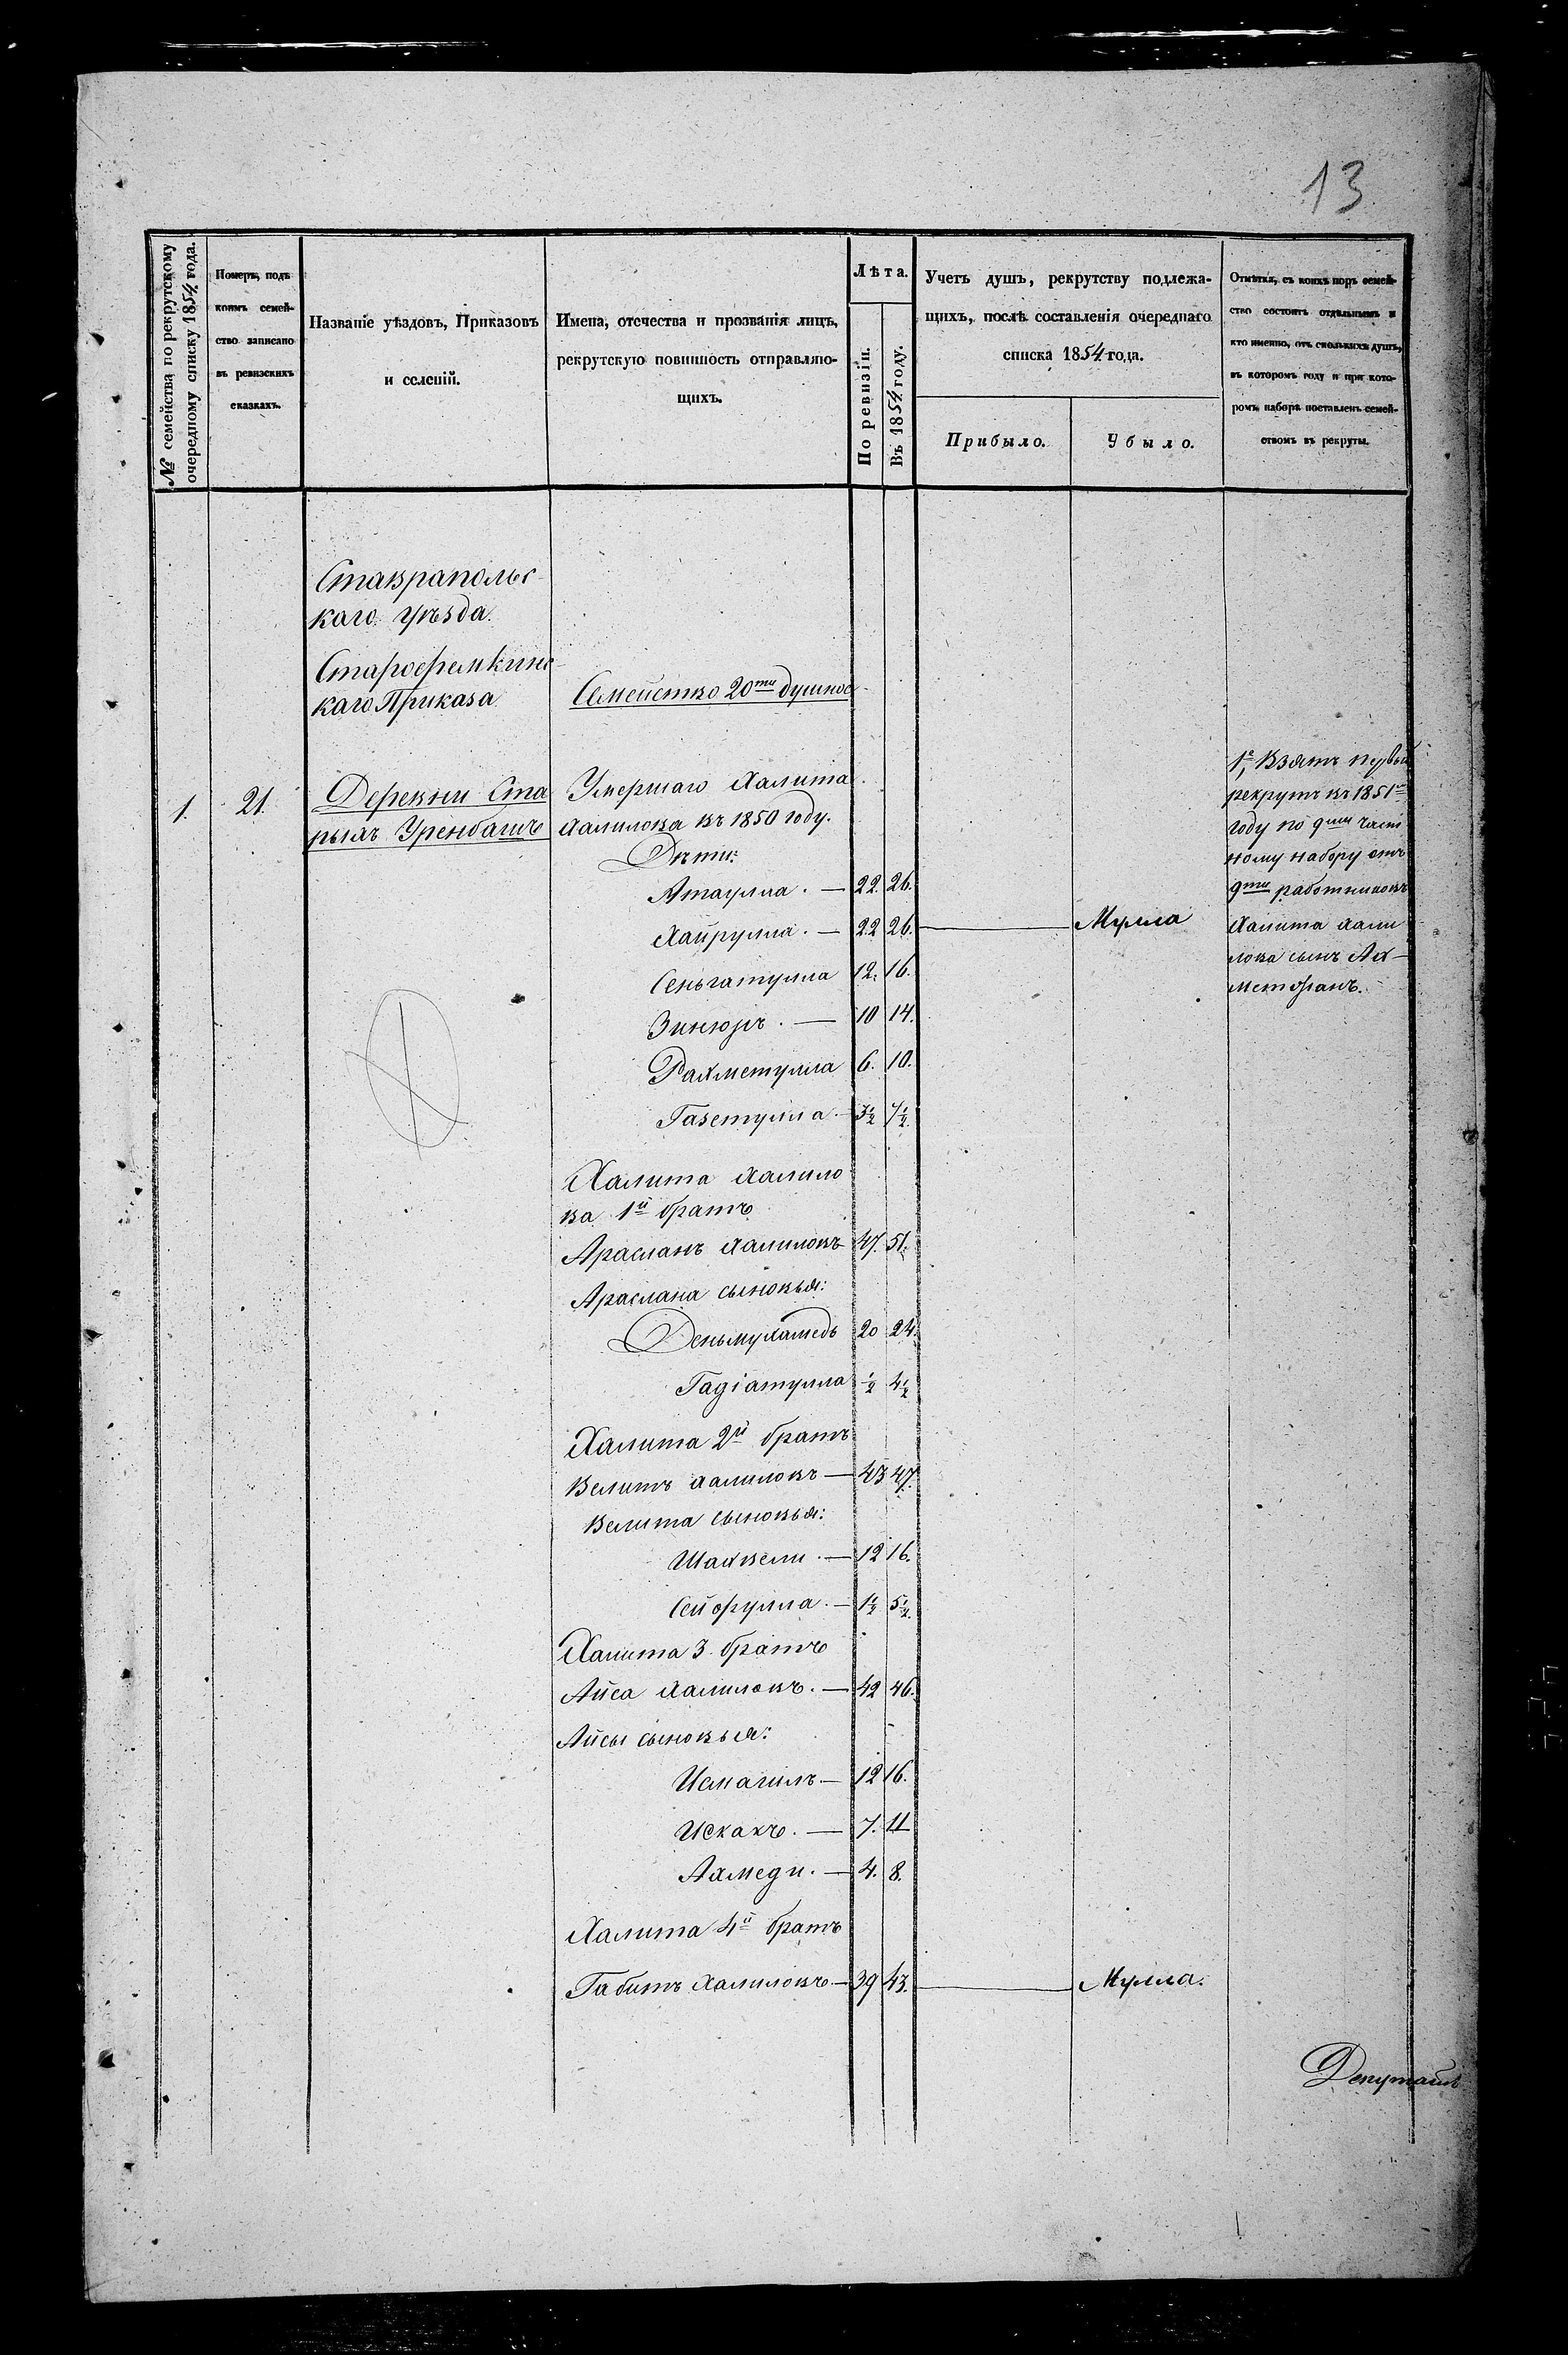 13
№ семейства по рекрутскому
очередному списку 1854 года.
Номеръ, подъ
коимъ семей-
ство записано
въ ревизскихъ
сказкахъ.
Названіе уѣздовъ, Приказовъ
и селеній.
Имена, отчества и прозванія лицъ,
рекрутскую повинность отправляю-
щихъ.
Лѣта.
По ревизіи.
Въ 1854 году.
Учетъ душъ, рекрутству подлежа-
щихъ, послѣ составленія очереднаго
списка 1854 года.
Прибыло.
Убыло.
Отмѣтка, съ коихъ поръ семей-
ство состоитъ отдѣльнымъ и
кто именно, отъ сколькихъ душъ,
въ которомъ году и при кото-
ромъ наборѣ поставленъ семей-
ствомъ въ рекруты.
Ставрапольс-
каго уѣзда.
Староеремкинс-
каго Приказа
Семейство 20ти душное
1. 21. Деревни Ста
рыхъ Уренбашъ
Умершаго Халита
Халилова въ 1850 году.
Дѣти:
Атаулла. — 22. 26.
Хайрулла. — 22 26. Мулла
Сеньгатулла 12. 16.
Зинюръ. — 10 14.
Рахметулла 6. 10.
Газетулла. 3½ 7½.
1е, Взятъ первый
рекрутъ въ 1851м
году по 9му част
ному набору отъ
9ти работниковъ
Халита Хали
лова сынъ Ах-
метфанъ.
Халита Халило
ва 1й братъ
Арасланъ Халиловъ 47. 51.
Араслана сыновья:
Деньмухамедъ 20 24.
Гадіатулла ½ 4½
Халита 2й братъ
Велитъ Халиловъ — 43 47.
Велита сыновья:
Шахвели. — 12 16.
Сейфулла. — 1½ 5½.
Халита 3. братъ
Айса Халиловъ. — 42 46.
Айсы сыновья:
Исмагилъ — 12 16.
Искакъ. — 7. 11
Ахмеди. — 4. 8.
Халита 4й братъ
Габитъ Халиловъ — 39 43. Мулла.
Депутатъ